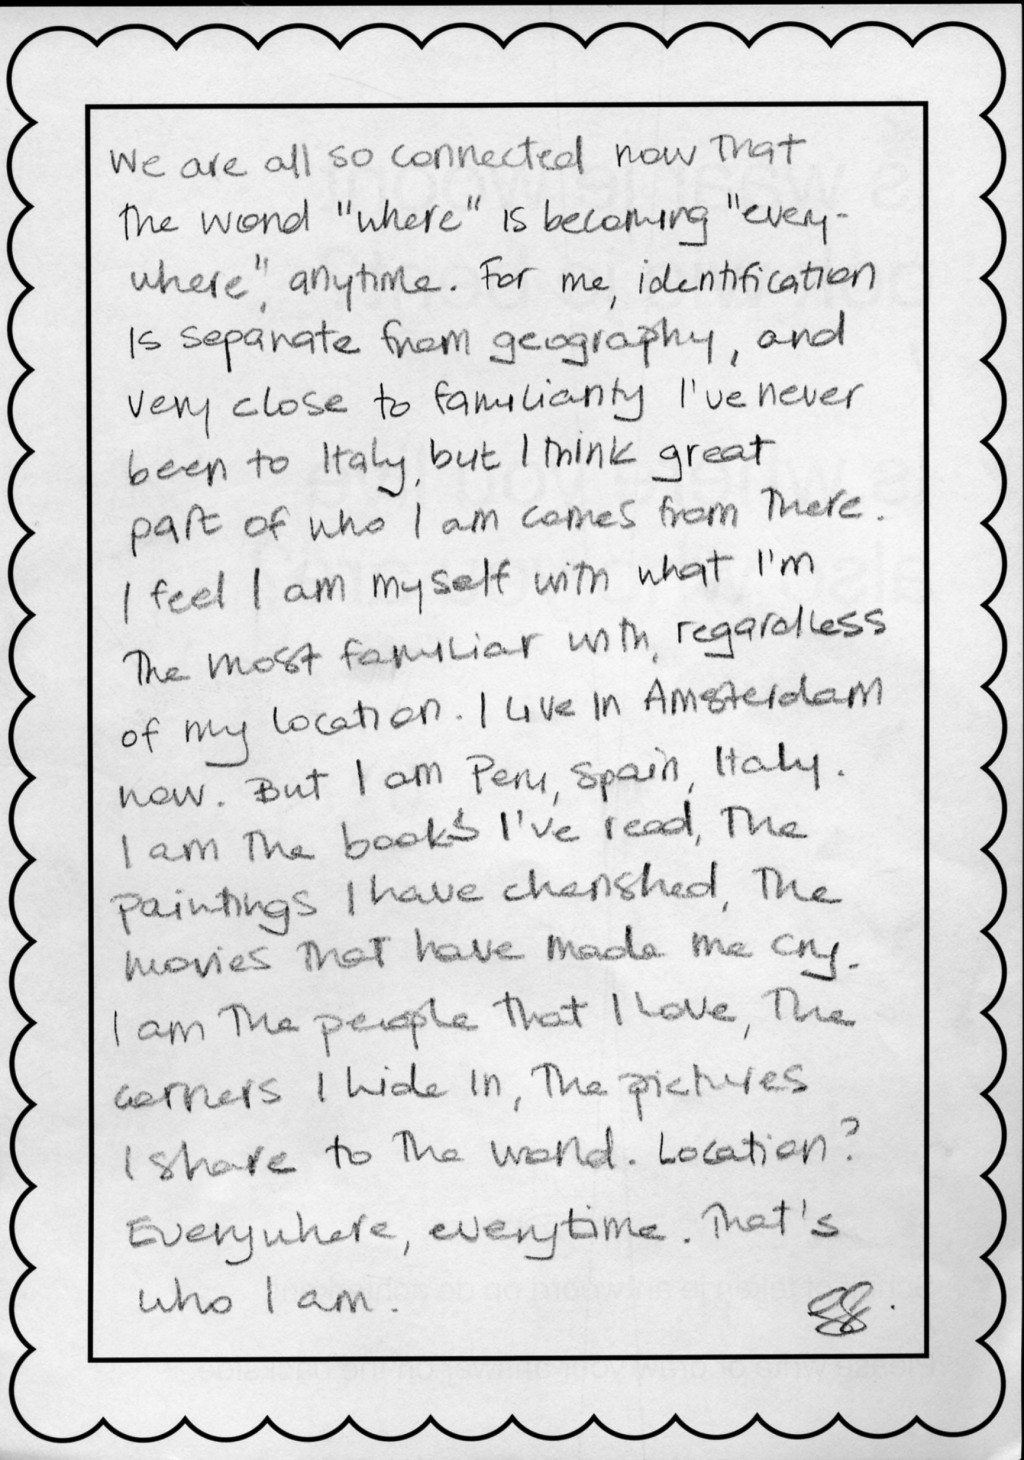 We are all so connected now that
the word "where" is becoming "every-
where", anytime. For me, identification
is separate from geography, and
very close to familiarity I've never
been to Italy, but I think great
part of who I am comes from there.
I feel I am myself with what I'm
the most familiar with, regardless
of my location. I live in Amsterdam
now. But I am Peru, Spain, Italy.
I am the books I've read, the
paintings I have cherished, the
movies that have made me cry.
I am the people that I love, the
corners I hide in, the pictures
I share to the world. Location?
Everywhere, everytime. That's
who I am.